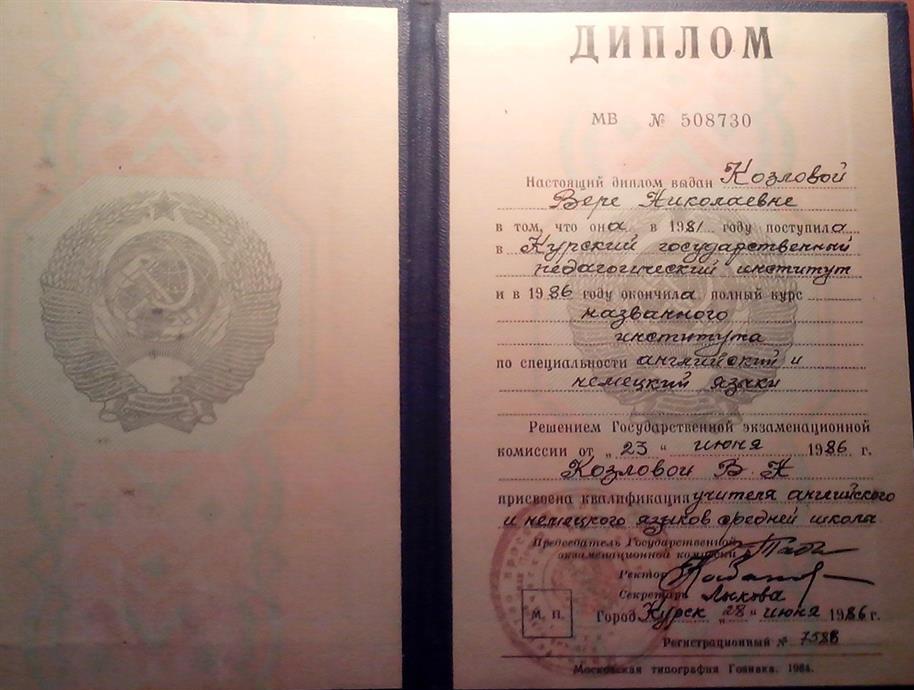 ДИПЛОМ
МВ № 508730
Настоящий диплом выдан Козловой
Вере Николаевне
в том, что она в 1981 году поступила
в Курский государственный
педагогический институт
и в 1986 году окончила полный курс
названного
института
по специальности английский и
немецкий языки
Решением Государственной экзаменационной
комиссии от „ 23 “ июня 1986 г.
Козловой В. Н
присвоена квалификация учителя английского
и немецкого языков средней школы
Председатель Государственной
экзаменационной комиссии
Ректор
Секретарь Лыкова
М. П.
Город Курск „ 28 “ июня 1986 г.
Регистрационный № 7588
Московская типография Гознака. 1984.